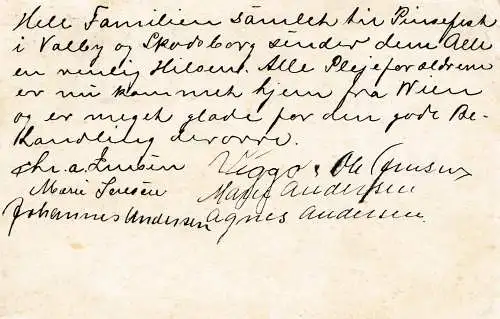 Hele Familien samlet til Pinsefest
i Valby og Skodsborg sender dem Alle
en venlig Hilsen. Alle Plejeforældrene
er nu kommet hjem fra Wien
og er meget glade for den gode Be-
handling derovre.
Chr. A. Jensen Viggo, Ole Jensen
Marie Jensen Mary Andersen
Johannes Andersen Agnes Andersen.